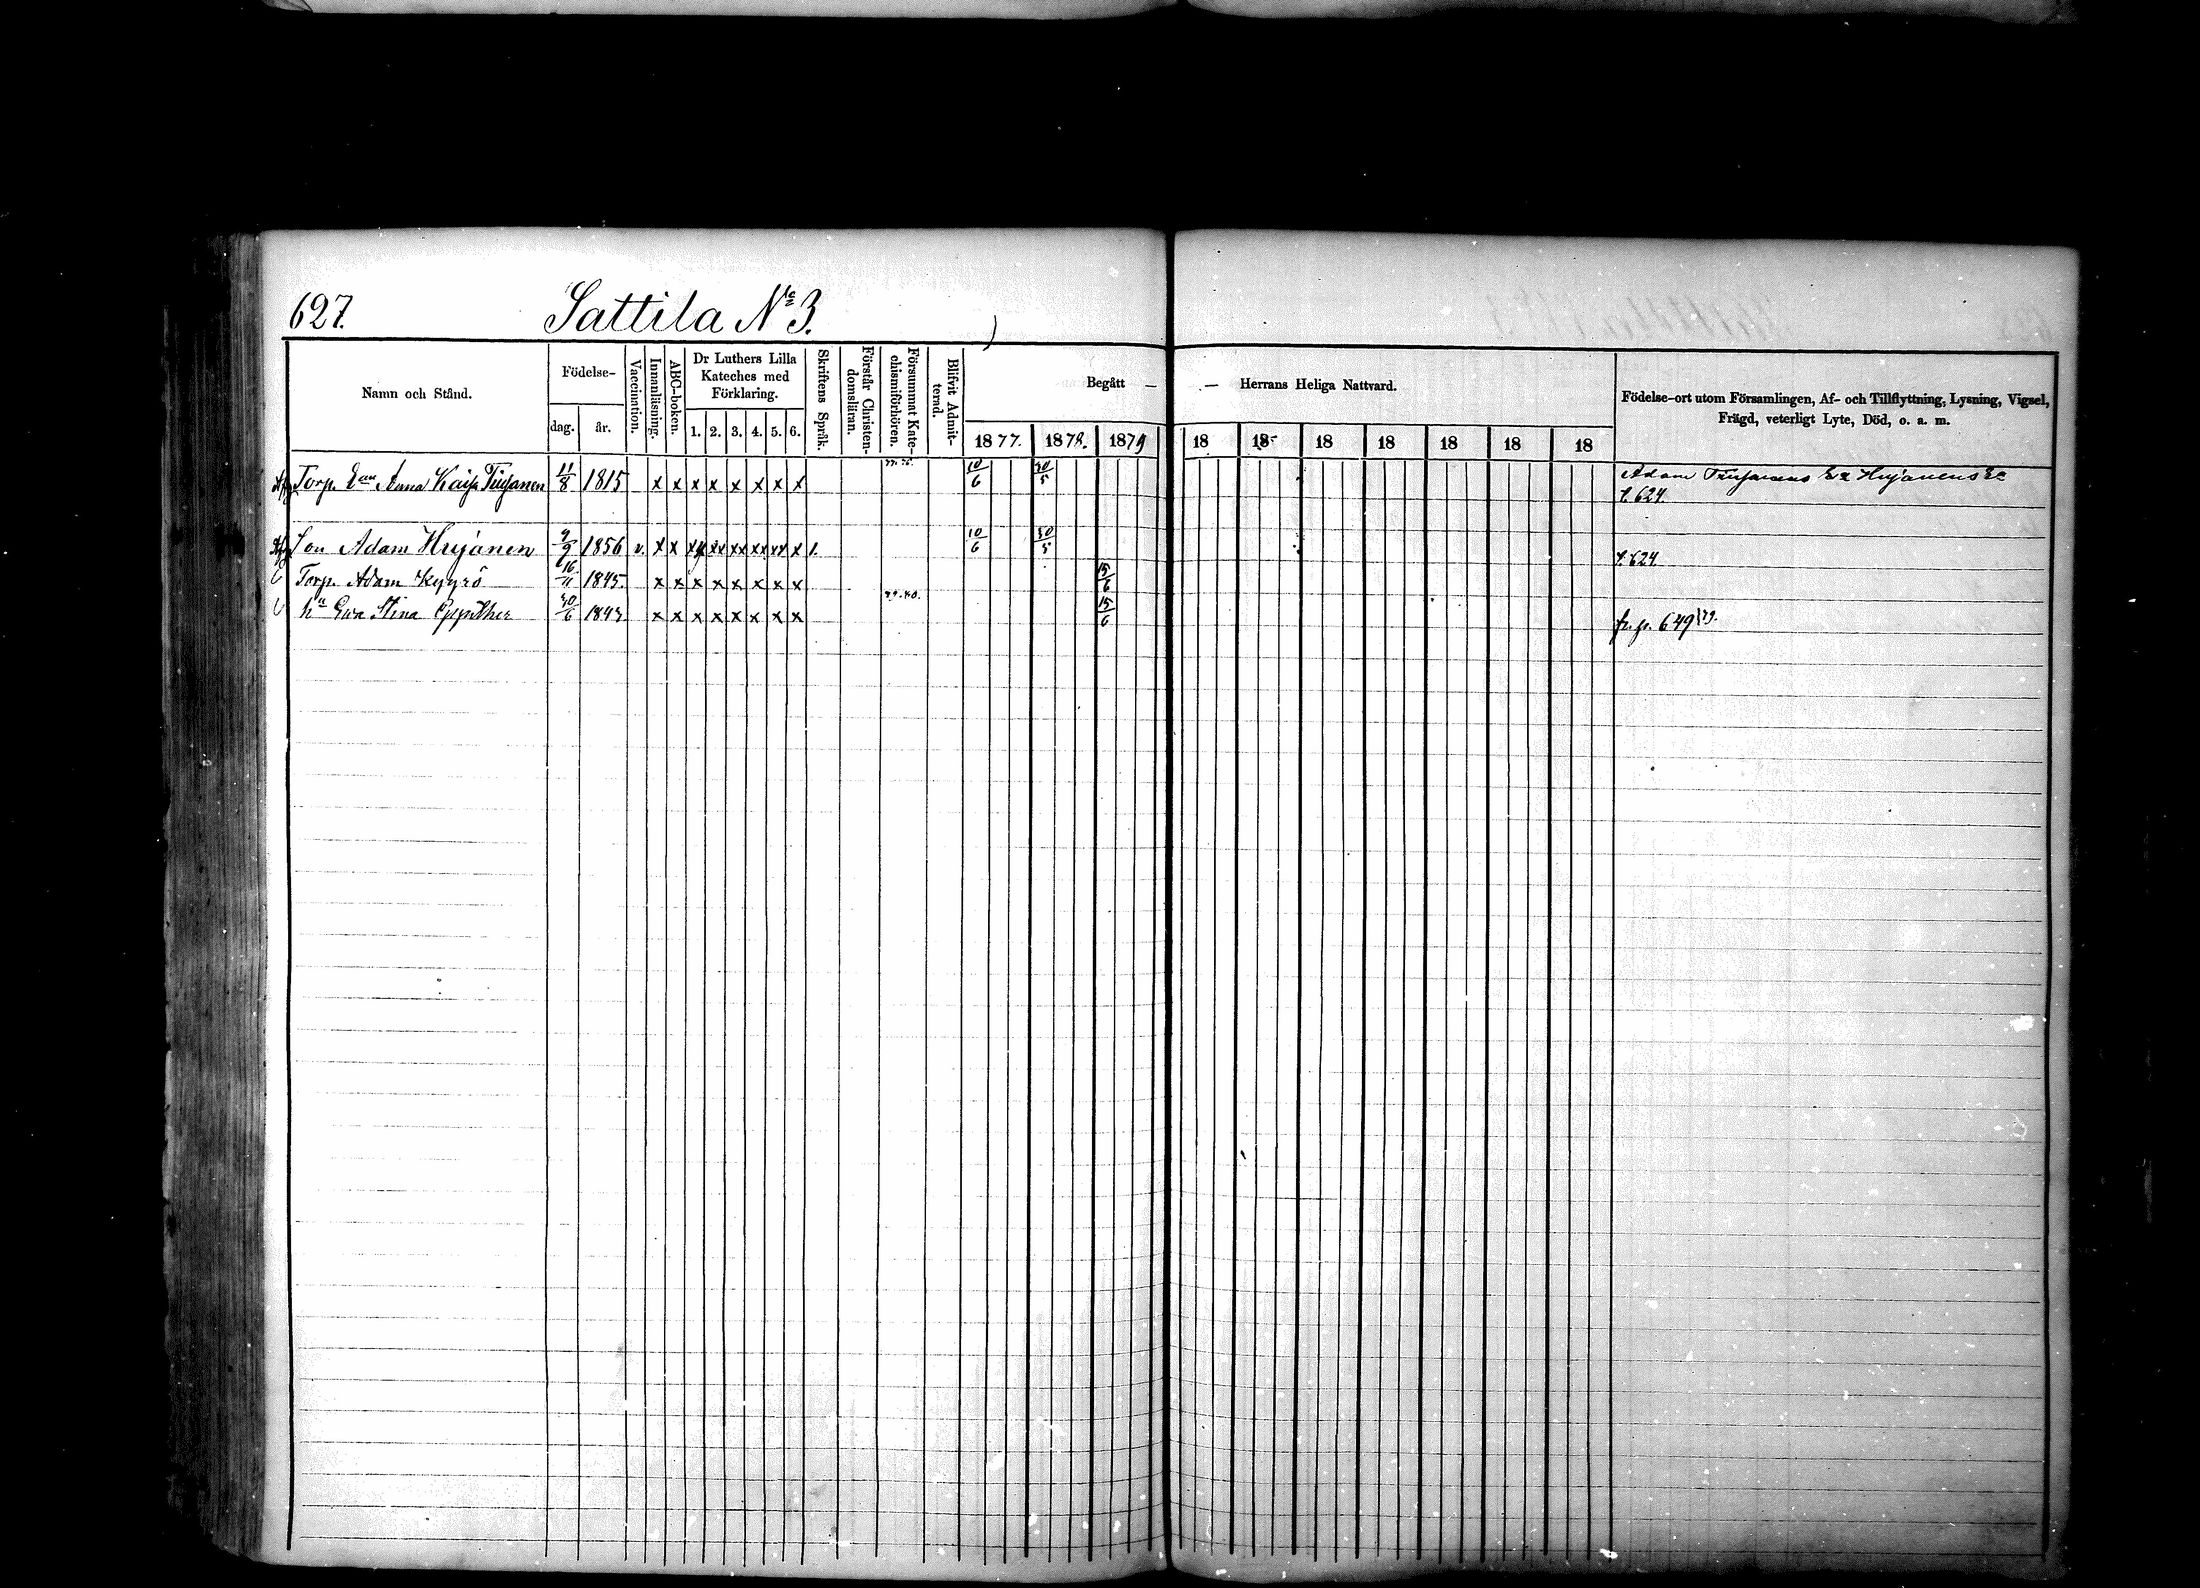 627. Sattila No 3.
Namn och Stånd.
Födelse-
dag.
år.
Vaccination.
Innanläsning.
ABC-boken.
Dr Luthers Lilla
Kateches med
Förklaring.
1. 2. 3. 4. 5. 6.
Skriftens Språk.
Förstår Christen-
domsläran.
Försummat Kate-
chismiförhören.
Blifvit Admit-
terad.
Begått —
— Herrans Heliga Nattvard.
1877. 1878. 1879 18 18 18 18 18 18 18
Födelse-ort utom Församlingen, Af- och Tillflyttning, Lysning, Vigsel,
Frägd, veterligt Lyte, Död, o. a. m.
Torp. Anna Kaisa 11/8 1815 x x x x x x x x 10/6 30/5 Adam
t. 624.
Son Adam 9/9 1856 v. x x xx xx xx xx xx x 1. 10/6 30/5 t. 624
Torp. Adam Kyyrö 16/11 1845. x x x x x x x x 15/6
hu Eva Stina 30/6 1843 x x x x x x x x 15/6 fr. p. 649 /79.